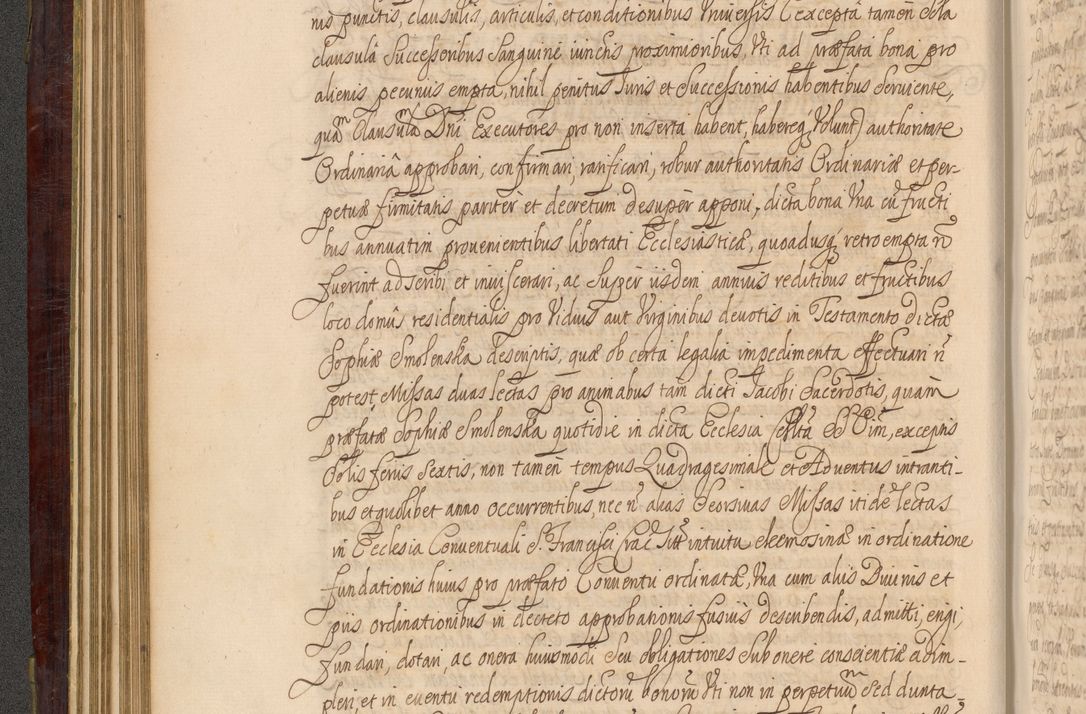 nis punctis, clausulis, articulis, et conditionibus Universis (excepta tamen sola
clausula Successoribus Sanguine iunctis proximioribus, Uti ad præfata bona pro
alienis pecuniis empta, nihil penitus Iuris et Successionis habentibus Serviente,
quam Clausulam Dni Executores pro non inserta habent, habereq; Volunt) authoritate
Ordinariâ approbari, confirmari, ratificari, robur authoritatis Ordinariæ et per-
petuæ firmitatis pariter et decretum desuper apponi, dicta bona Una cũ fructi
bus annuatim provenientibus libertati Ecclesiasticæ, quoadusq; retroempta ñ
fuerint adscribi et inviscerari, ac Super iisdem annuis reditibus et fructibus
loco domûs residentialis pro Viduis aut Virginibus devotis in Testamento dictæ
Sophiæ Smolenska descriptis, quæ ob certa legalia impedimenta effectuari ñ
potest, Missas duas lectas pro animabus tam dicti Jacobi Sacerdotis, quam
præfatæ Sophiæ Smolenska quotidie in dicta Ecclesia OO, exceptis
Solis feriis Sextis, non tamen tempus Quadragesimale et Adventus intranti-
bus et quolibet anno occurrentibus, nec ñ alias Seorsivas Missas itidẽ lectas
in Ecclesia Conventuali S. Francisci intuitu eleemosinæ in ordinatione
fundationis huius pro præfato Conventu ordinatæ, Una cum aliis Divinis et
piis ordinationibus in decreto approbationis fusius describendis, admitti, erigi,
fundari, dotari, ac onera huiusmodi Seu obligationes Sub onere conscientiæ adim-
pleri, et in eventu redemptionis dictorũ bonorũ Uti non in perpetuum Sed dunta-